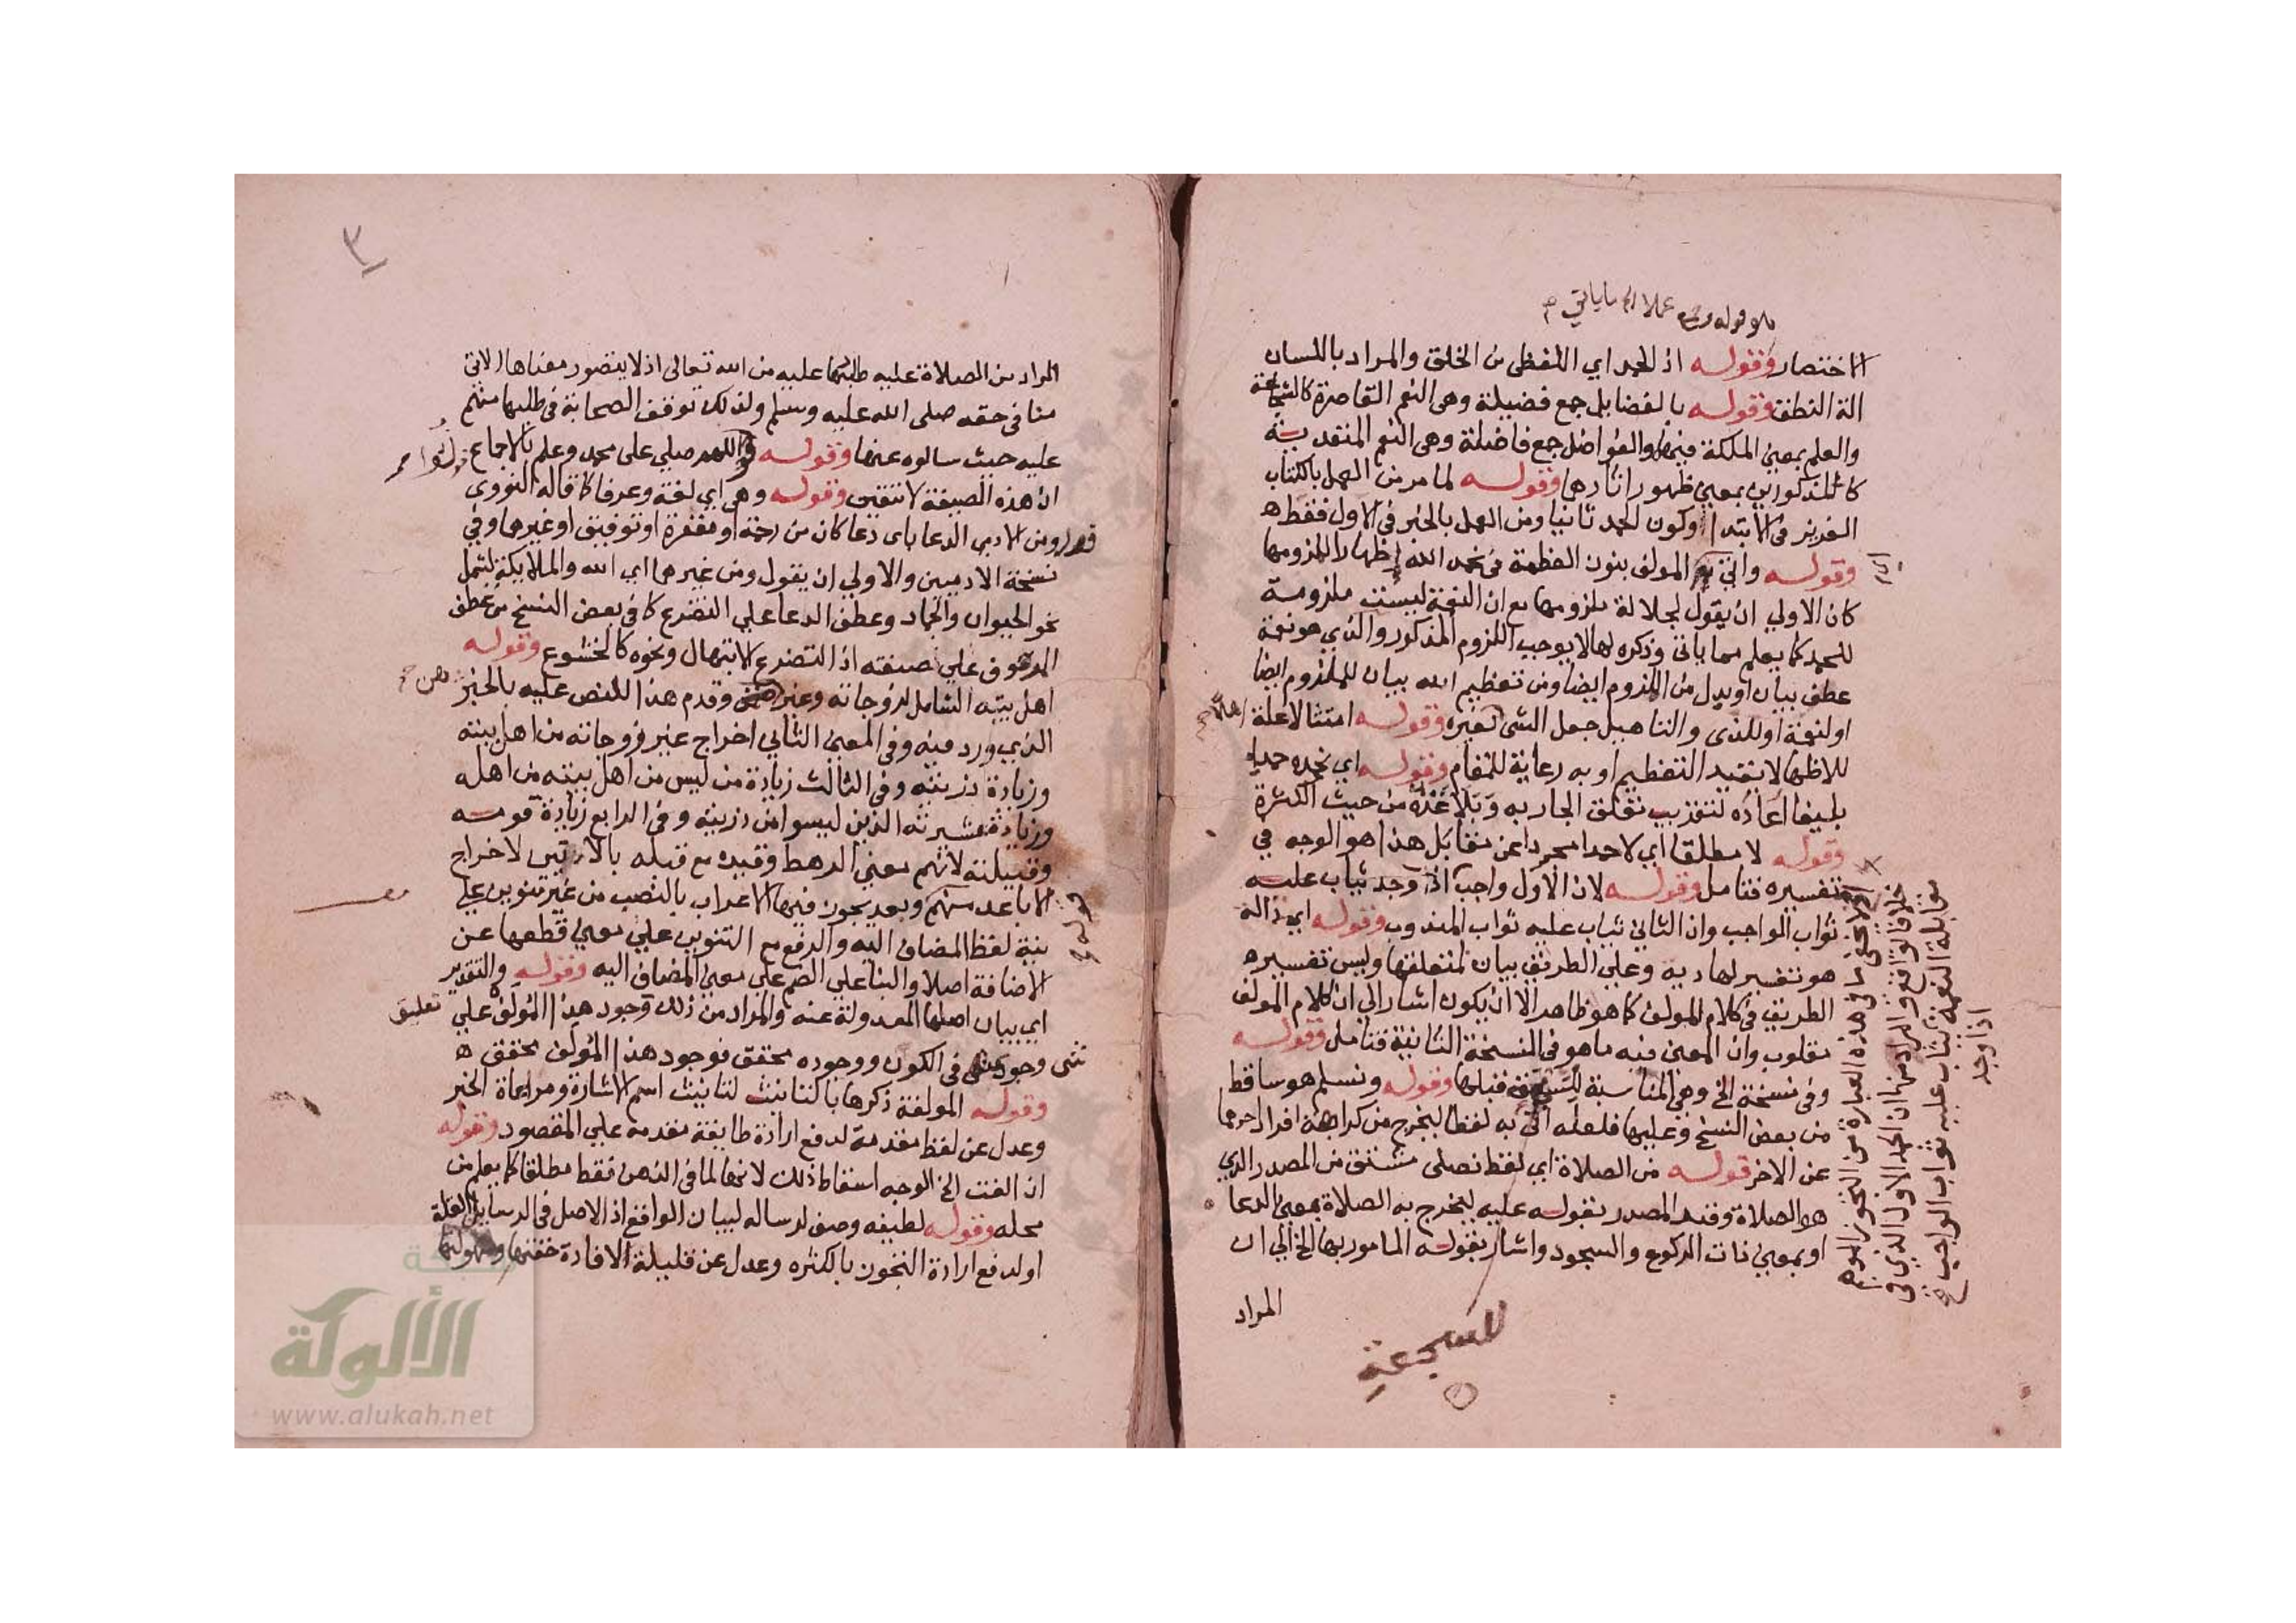 الاختصار وقوله اذ الحمد اي اللفظي من الخلق والمراد باللسان
الة النطق وقوله بالفضايل جمع فضيلة وهي النعم القاصرة كالشجاعة
والعلم بمعنى الملكة فيهما والفواضل جمع فاضلة وهي النعم المتعدية
كالمذكورين بمعني ظهور اثارها وقوله لما مر من العمل بالكتاب
العزيز في الابتدا وكون الحمد ثانيا ومن العمل بالخبر في الاول فقط
وقوله واتي المولف بنون العظمة في نحمد الله إظهارا لملزومها
كان الاولي ان يقول لجلالة ملزومها مع ان النعمة ليست ملزومة
للحمد كما يعلم مما ياتي وذكره لها لا يوجب اللزوم المذكور والذي هو نعمة
عطف بيان او بدل من الملزوم ايضا ومن تعظيم الله بيان للملزوم ايضا
او لنعمة او للذي والتاهيل جعل الشي لغيره وقوله امتثالا علة
للاظهار لا بقيد التعظيم او به رعاية للمقام وقوله اي نحمده حمدا
بليغا اعاده لتقريب تعلق الجار به وبلاغته من حيث الكثرة
وقوله لا مطلقا اي لا حمدا مجردا عن مقابل هذا هو الوجه في
تفسيره فتامل وقوله لان الاول واجب اذا وجد يثاب عليه
ثواب الواجب وان الثاني يثاب عليه ثواب المندوب وقوله اي دالة
هو تفسير لهادية وعلي الطريق بيان لمتعلقها وليس تفسيره
الطريق في كلام المولف كما هو ظاهر الا ان يكون اشار الي ان كلام المولف
مقلوب وان المعنى فيه ما هو في النسخة الثانية فتامل وقوله
وفي نسخة الخ وهي المناسبة قبلها وقوله ونسلم هو ساقط
من بعض النسخ وعليها فلعله اتى به لفظا ليخرج من كراهة افراد احدهما
عن الاخر قوله من الصلاة اي لفظ نصلى مشتق من المصدر الذي
هو الصلاة وقيد المصدر بقوله عليه ليخرج به الصلاة بمعني الدعا
او بمعني ذات الركوع والسجود واشار بقوله المامور بها الخ الي ان
المراد
للسجعية
خلاف الواقع والمراد منها ان الحمد الاول الذي في
مقابلة النعمة يثاب عليه ثواب الواجب
اذا وجد
٣
المراد من الصلاة عليه طلبها عليه من الله تعالى اذ لا يتصور معناها الاتي
منا في حقه صلى الله عليه وسلم ولذلك توقف الصحابة في طلبها منهم
عليه حيث سالوه عنها وقوله اللهم صلي على محمد وعلم بالاجماع
ان هذه الصيغة لا تتعين وقوله وهي اي لغة وعرفا كما قاله النووي
ومن الادمي الدعا باى دعا كان من رحمة او مغفرة او توفيق او غيرها وفي
نسخة الادميين والاولي ان يقول ومن غيرهما اي الله والملايكة ليشمل
نحو الحيوان والجماد وعطف الدعا علي التضرع كما في بعض النسخ من عطف
الموصوف علي صفته اذ التضرع الابتهال ونحوه كالخشوع وقوله
اهل بيته الشامل لزوجاته وقدم هذا للنص عليه بالخبر
الذي ورد فيه وفي المعنى الثاني اخراج غير زوجاته من اهل بيته
وزيادة ذريته وفي الثالث زيادة من ليس من اهل بيته من اهله
وزيادة عشيرته الذين ليسوا من ذريته وفي الرابع زيادة قومه
وقبيلته لانهم معني الرهط وقيده مع قبله بالاقربين لاخراج
الاباعد منهم وبعد يجوز فيها الاعراب بالنصب من غير تنوين علي
نية لفظ المضاف اليه والرفع مع التنوين علي معني قطعها عن
الاضافة اصلا والبنا علي الضم علي معنى المضاف اليه وقوله والتقدير
اي بيان اصلها المعدولة عنه والمراد من ذلك وجود هذا المولف علي تعليق
شى وجود في الكون ووجوده محقق فوجود هذا المولف محقق
وقوله المولفة ذكرها بالتانيث لتانيث اسم الاشارة ومراعاة الخبر
وعدل عن لفظ مقدمة لدفع ارادة طايفة مقدمة علي المقصود وقوله
ان الفت الخ الوجه اسقاط ذلك لانها لما في الذهن فقط مطلقا كما يعلم من
محله وقوله لطيفه وصف لرساله لبيان الواقع اذ الاصل في الرسايل القلة
او لدفع ارادة التجوز بالكثره وعدل عن قليلة لافادة خفتها وسهولتها
شبكة
الألوكة
www.alukah.net